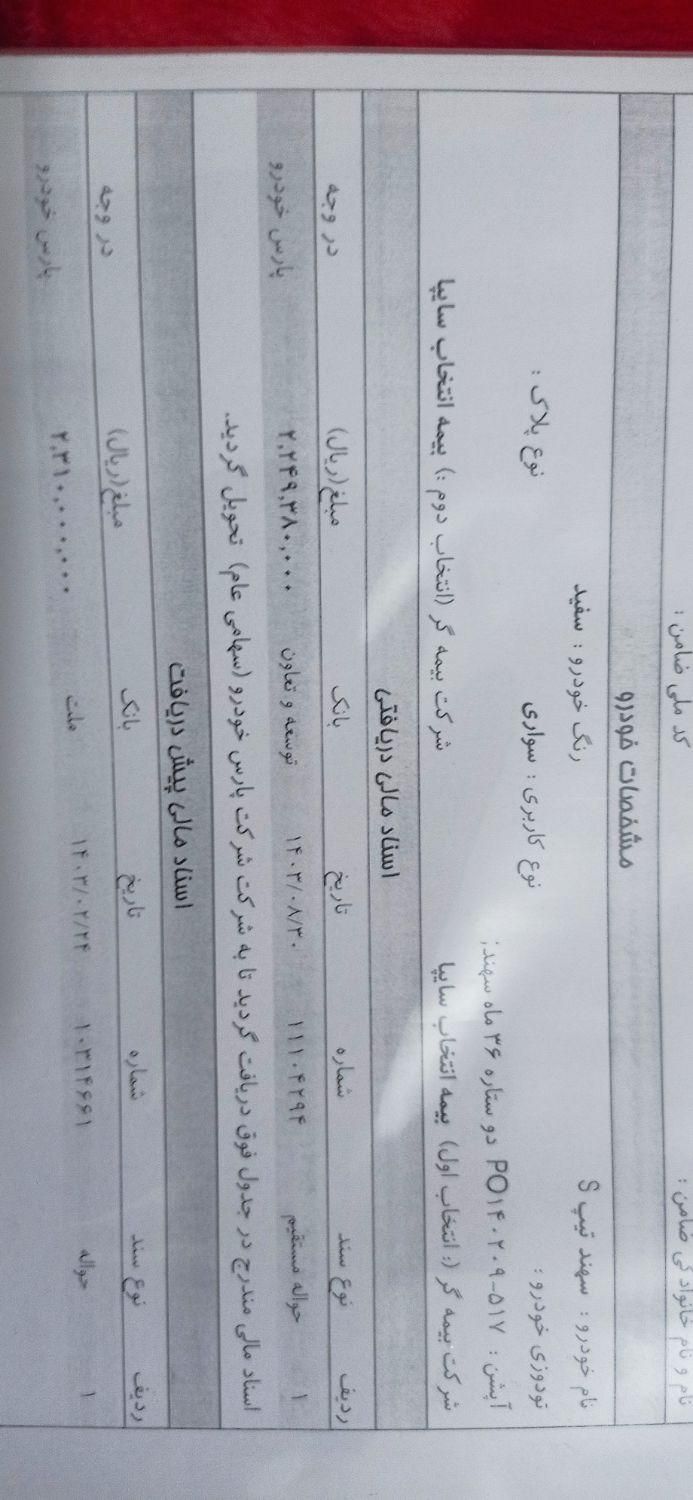 نام و نام خانوادگی ضامن : کد ملی ضامن :
مشخصات خودرو
نام خودرو : سهند تیپ S رنگ خودرو : سفید
تودوزی خودرو : نوع کاربری : سواری نوع پلاک :
آپشن : PO۱۴۰۲۰۹-۵۱۷ دو ستاره ۳۶ ماه سهند;
شرکت بیمه گر (: انتخاب اول) بیمه انتخاب سایپا شرکت بیمه گر (انتخاب دوم :) بیمه انتخاب سایپا
اسناد مالی دریافتی
ردیف نوع سند شماره تاریخ بانک مبلغ(ریال) در وجه
۱ حواله مستقیم ۱۱۱۰۴۲۹۴ ۱۴۰۳/۰۸/۳۰ توسعه و تعاون ۲,۲۴۹,۳۸۰,۰۰۰ پارس خودرو
اسناد مالی مندرج در جدول فوق دریافت گردید تا به شرکت شرکت پارس خودرو (سهامی عام) تحویل گردید.
اسناد مالی پیش دریافت
ردیف نوع سند شماره تاریخ بانک مبلغ(ریال) در وجه
۱ حواله ۱۰۳۱۴۶۶۱ ۱۴۰۳/۰۲/۲۴ ملت ۲,۳۱۰,۰۰۰,۰۰۰ پارس خودرو